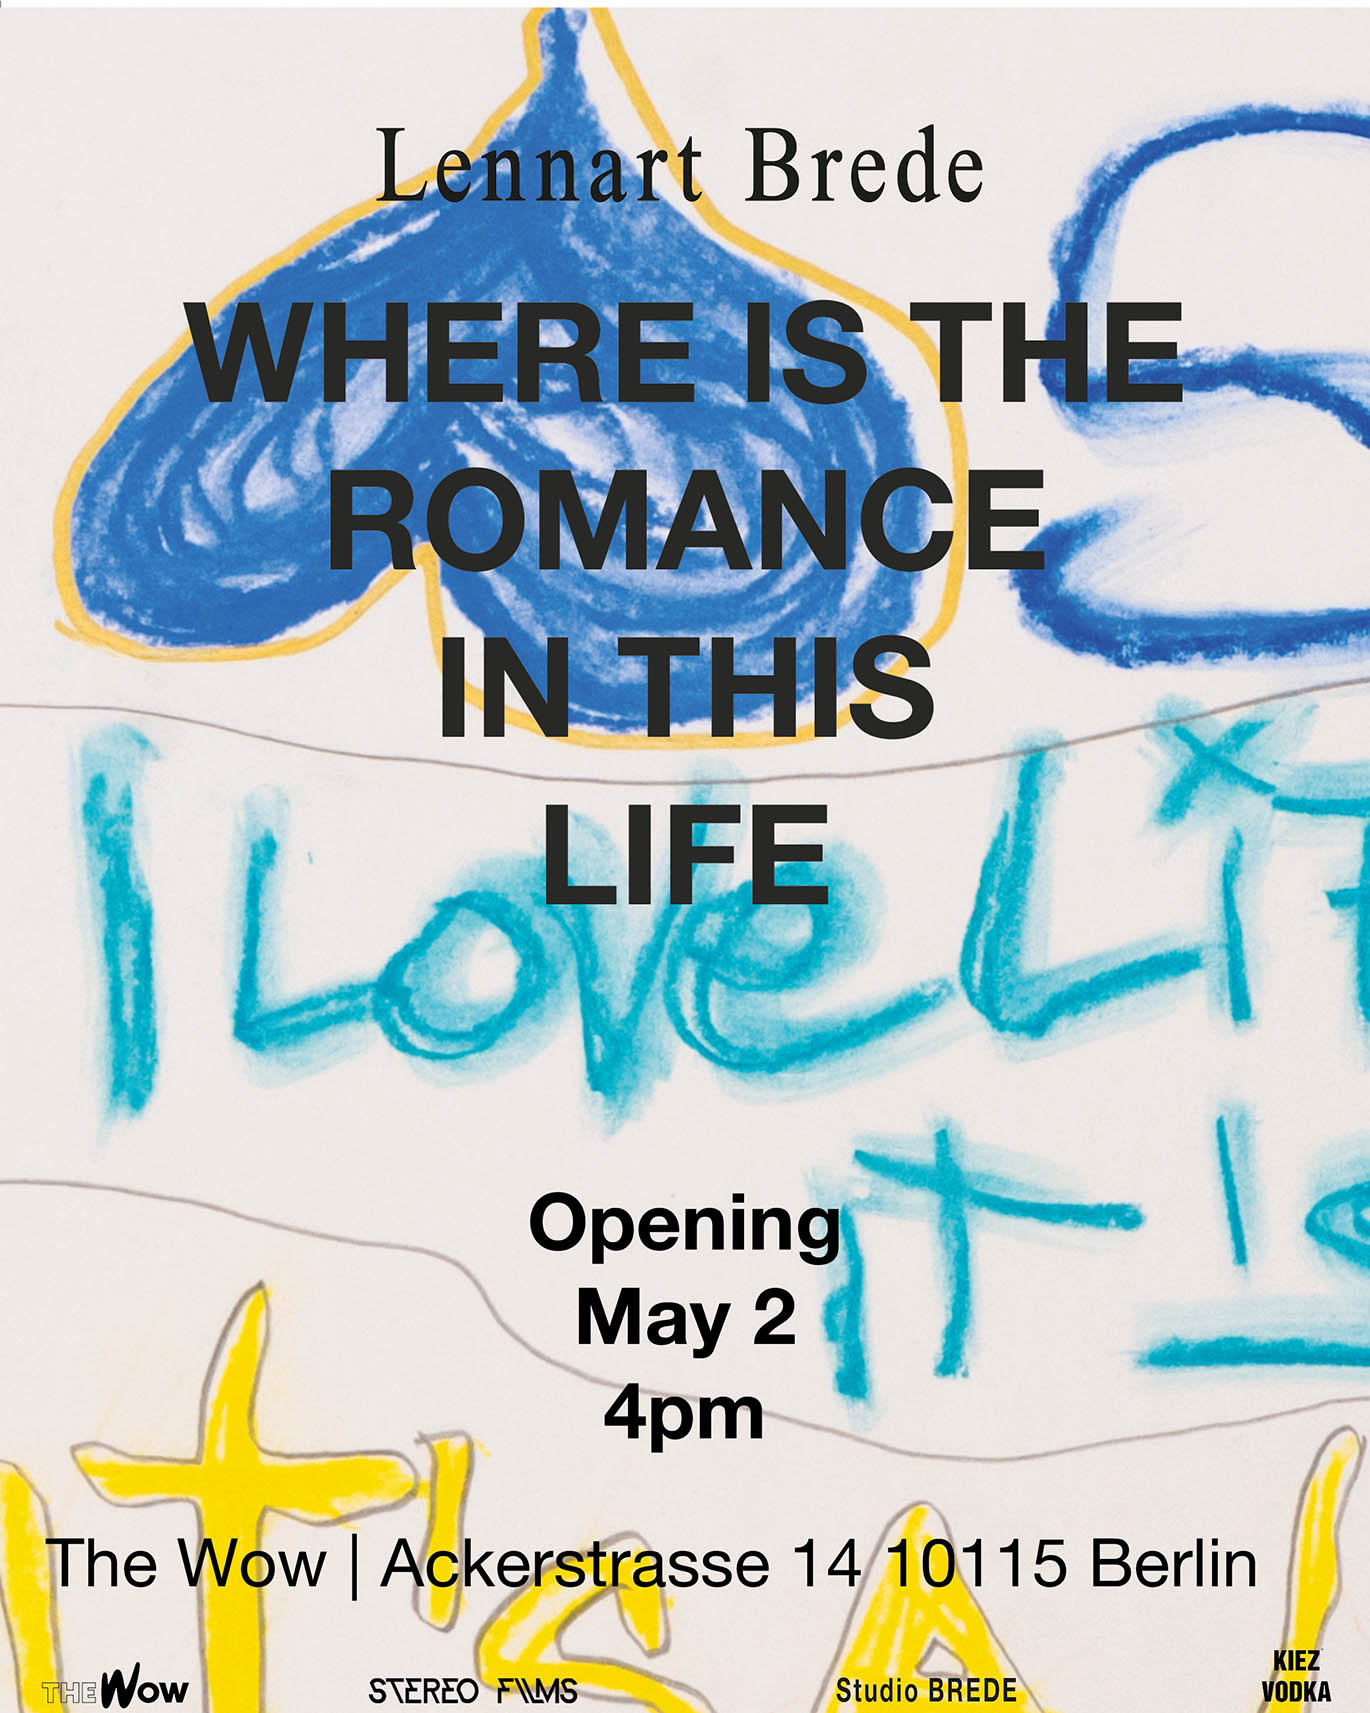 Lennart Brede
WHERE IS THE
ROMANCE
IN THIS
LIFE
I Love Li
IT I
Opening
May 2
4pm
IT'S A
The Wow | Ackerstrasse 14 10115 Berlin
THE Wow
STEREO FILMS
Studio BREDE
KIEZ
VODKA